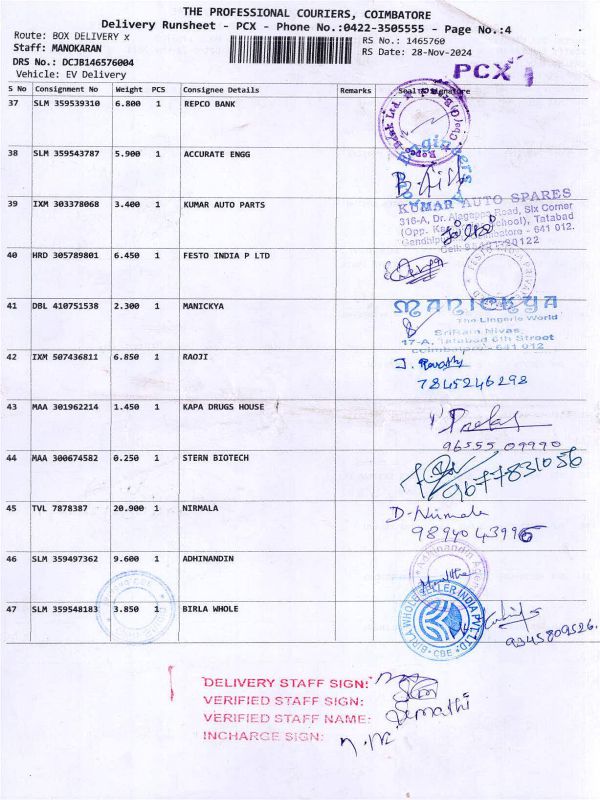 THE PROFESSIONAL COURIERS, COIMBATORE
Delivery Runsheet - PCX - Phone No.:0422-3505555 - Page No.:4
Route: BOX DELIVERY x
Staff: MANOKARAN
DRS No.: DCJB146576004
Vehicle: EV Delivery
RS No.: 1465760
RS Date: 28-Nov-2024
PCX
S No Consignment No Weight PCS Consignee Details Remarks Seal & Signature
37 SLM 359539310 6.800 1 REPCO BANK
Repco Bank Ltd.
38 SLM 359543787 5.900 1 ACCURATE ENGG
Engineers
39 IXM 303378068 3.400 1 KUMAR AUTO PARTS
KUMAR AUTO SPARES
316-A, Dr. Alagappa Road, Six Corner
Tatabad
641 012.
40 HRD 305789801 6.450 1 FESTO INDIA P LTD
41 DBL 410751538 2.300 1 MANICKYA
MANICKYA
The Lingerie World
SriRam Nivas,
17-A, Tatabad 6th Street
Coimbatore - 641 012
42 IXM 507436811 6.850 1 RAOJI
J. Revathy
7845246298
43 MAA 301962214 1.450 1 KAPA DRUGS HOUSE
96555 09990
44 MAA 300674582 0.250 1 STERN BIOTECH
9677831056
45 TVL 7878387 20.900 1 NIRMALA
D-Nirmala
9894043996
46 SLM 359497362 9.600 1 ADHINANDIN
Adhinandin
47 SLM 359548183 3.850 1 BIRLA WHOLE
BIRLA WHOLESELLER INDIA PVT LTD.
CBE
9345809526.
DELIVERY STAFF SIGN:
VERIFIED STAFF SIGN:
VERIFIED STAFF NAME: Dimathi
INCHARGE SIGN: